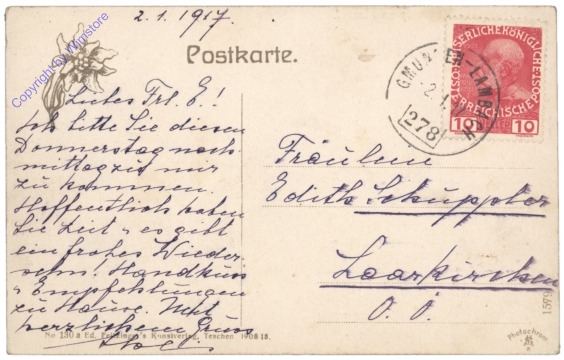 2.1.1917
Postkarte.
Copyright by Wigistore
Liebes Frl. E!
Ich bitte Sie diesen
Donnerstag nach-
mittag zu mir
zu kommen.
Hoffentlich haben
Sie Zeit u es gibt
ein frohes Wieder-
sehn! Handkuss
u Empfehlungen
zu Hause. Mit
herzlichem Gruss
GMUNDEN-LAMBACH
278
KAISERLICHE KÖNIGLICHE
ÖSTERREICHISCHE POST
10 10
Fräulein
Edith Schuppler
Laakirchen
O. Ö.
No 130 a Ed. Feitzinger's Kunstverlag, Teschen 1908 18.
Photochrom